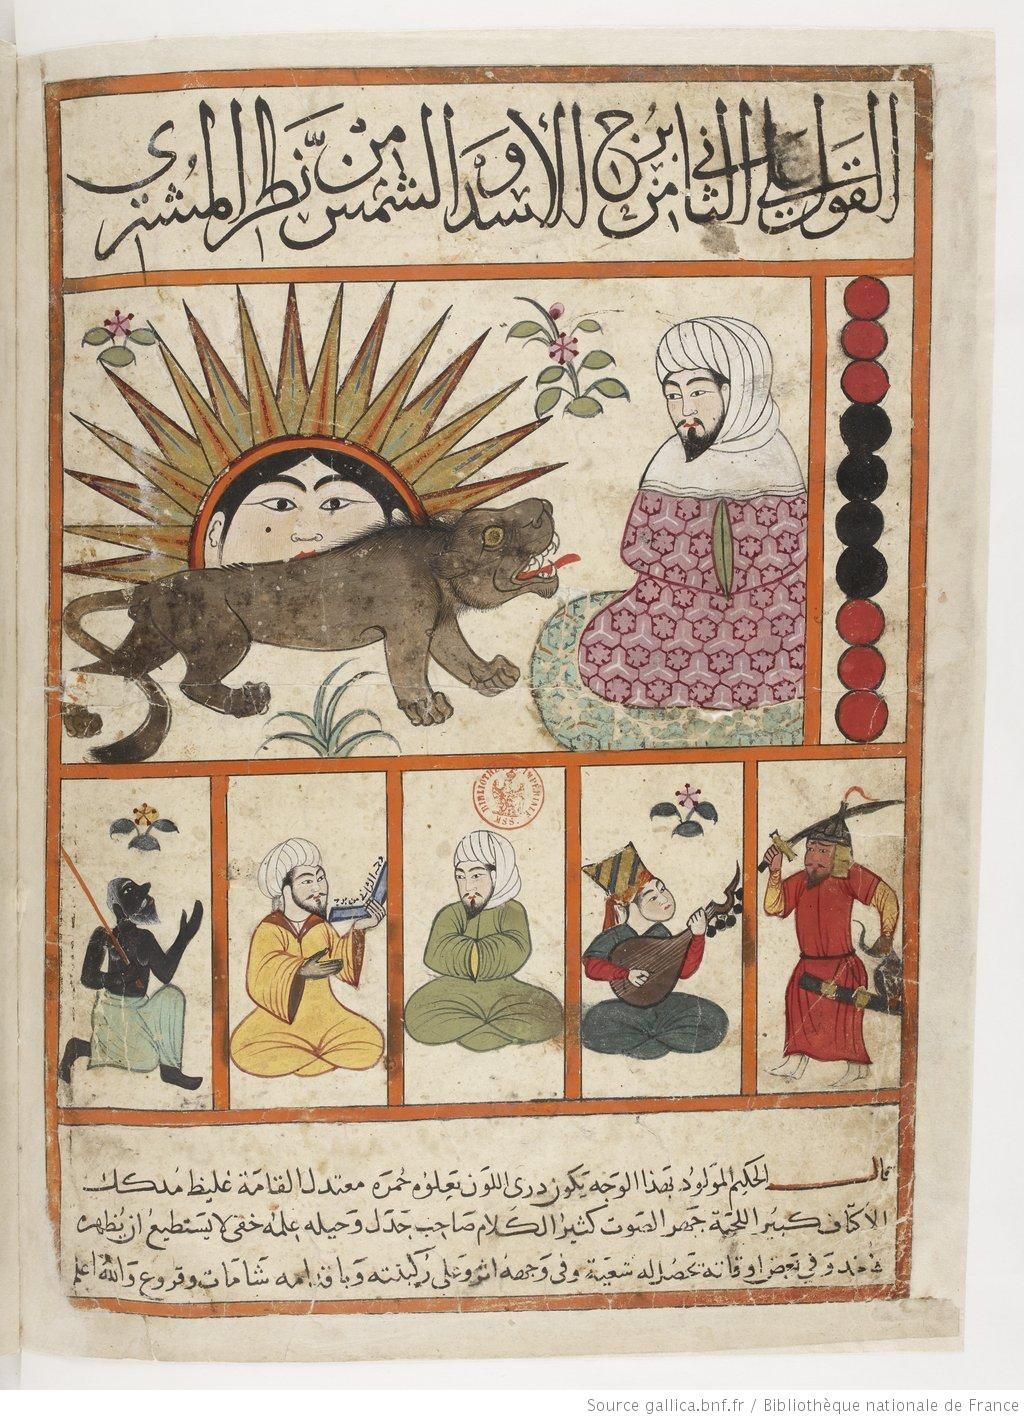 القول على الثاني من برج الاسد والشمس من نظر المشترى
BIBLIOTHE IMPÉRIALE MSS.
قال الحكيم المولود بهذا الوجه يكون درى اللون تعلوه حمرة معتدل القامة غليظ مدكك
الاكتاف كبير اللحية جهر الصوت كثير الكلام صاحب جدل وحيله علمه خفى لا يستطيع ان يظهره
وفي بعض اوقاته تحصل له شعبة وفى وجهه اثر وعلى ركبته وباقدامه شامات وقروع والله اعلم
Source gallica.bnf.fr / Bibliothèque nationale de France